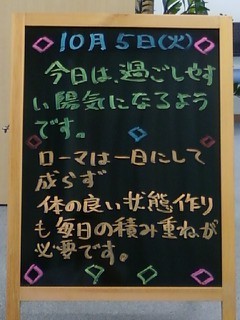 10月5日(火)
今日は、過ごしやす
い陽気になるよう
です。
ローマは一日にして
成らず
体の良い状態作り
も毎日の積み重ねが
必要です。